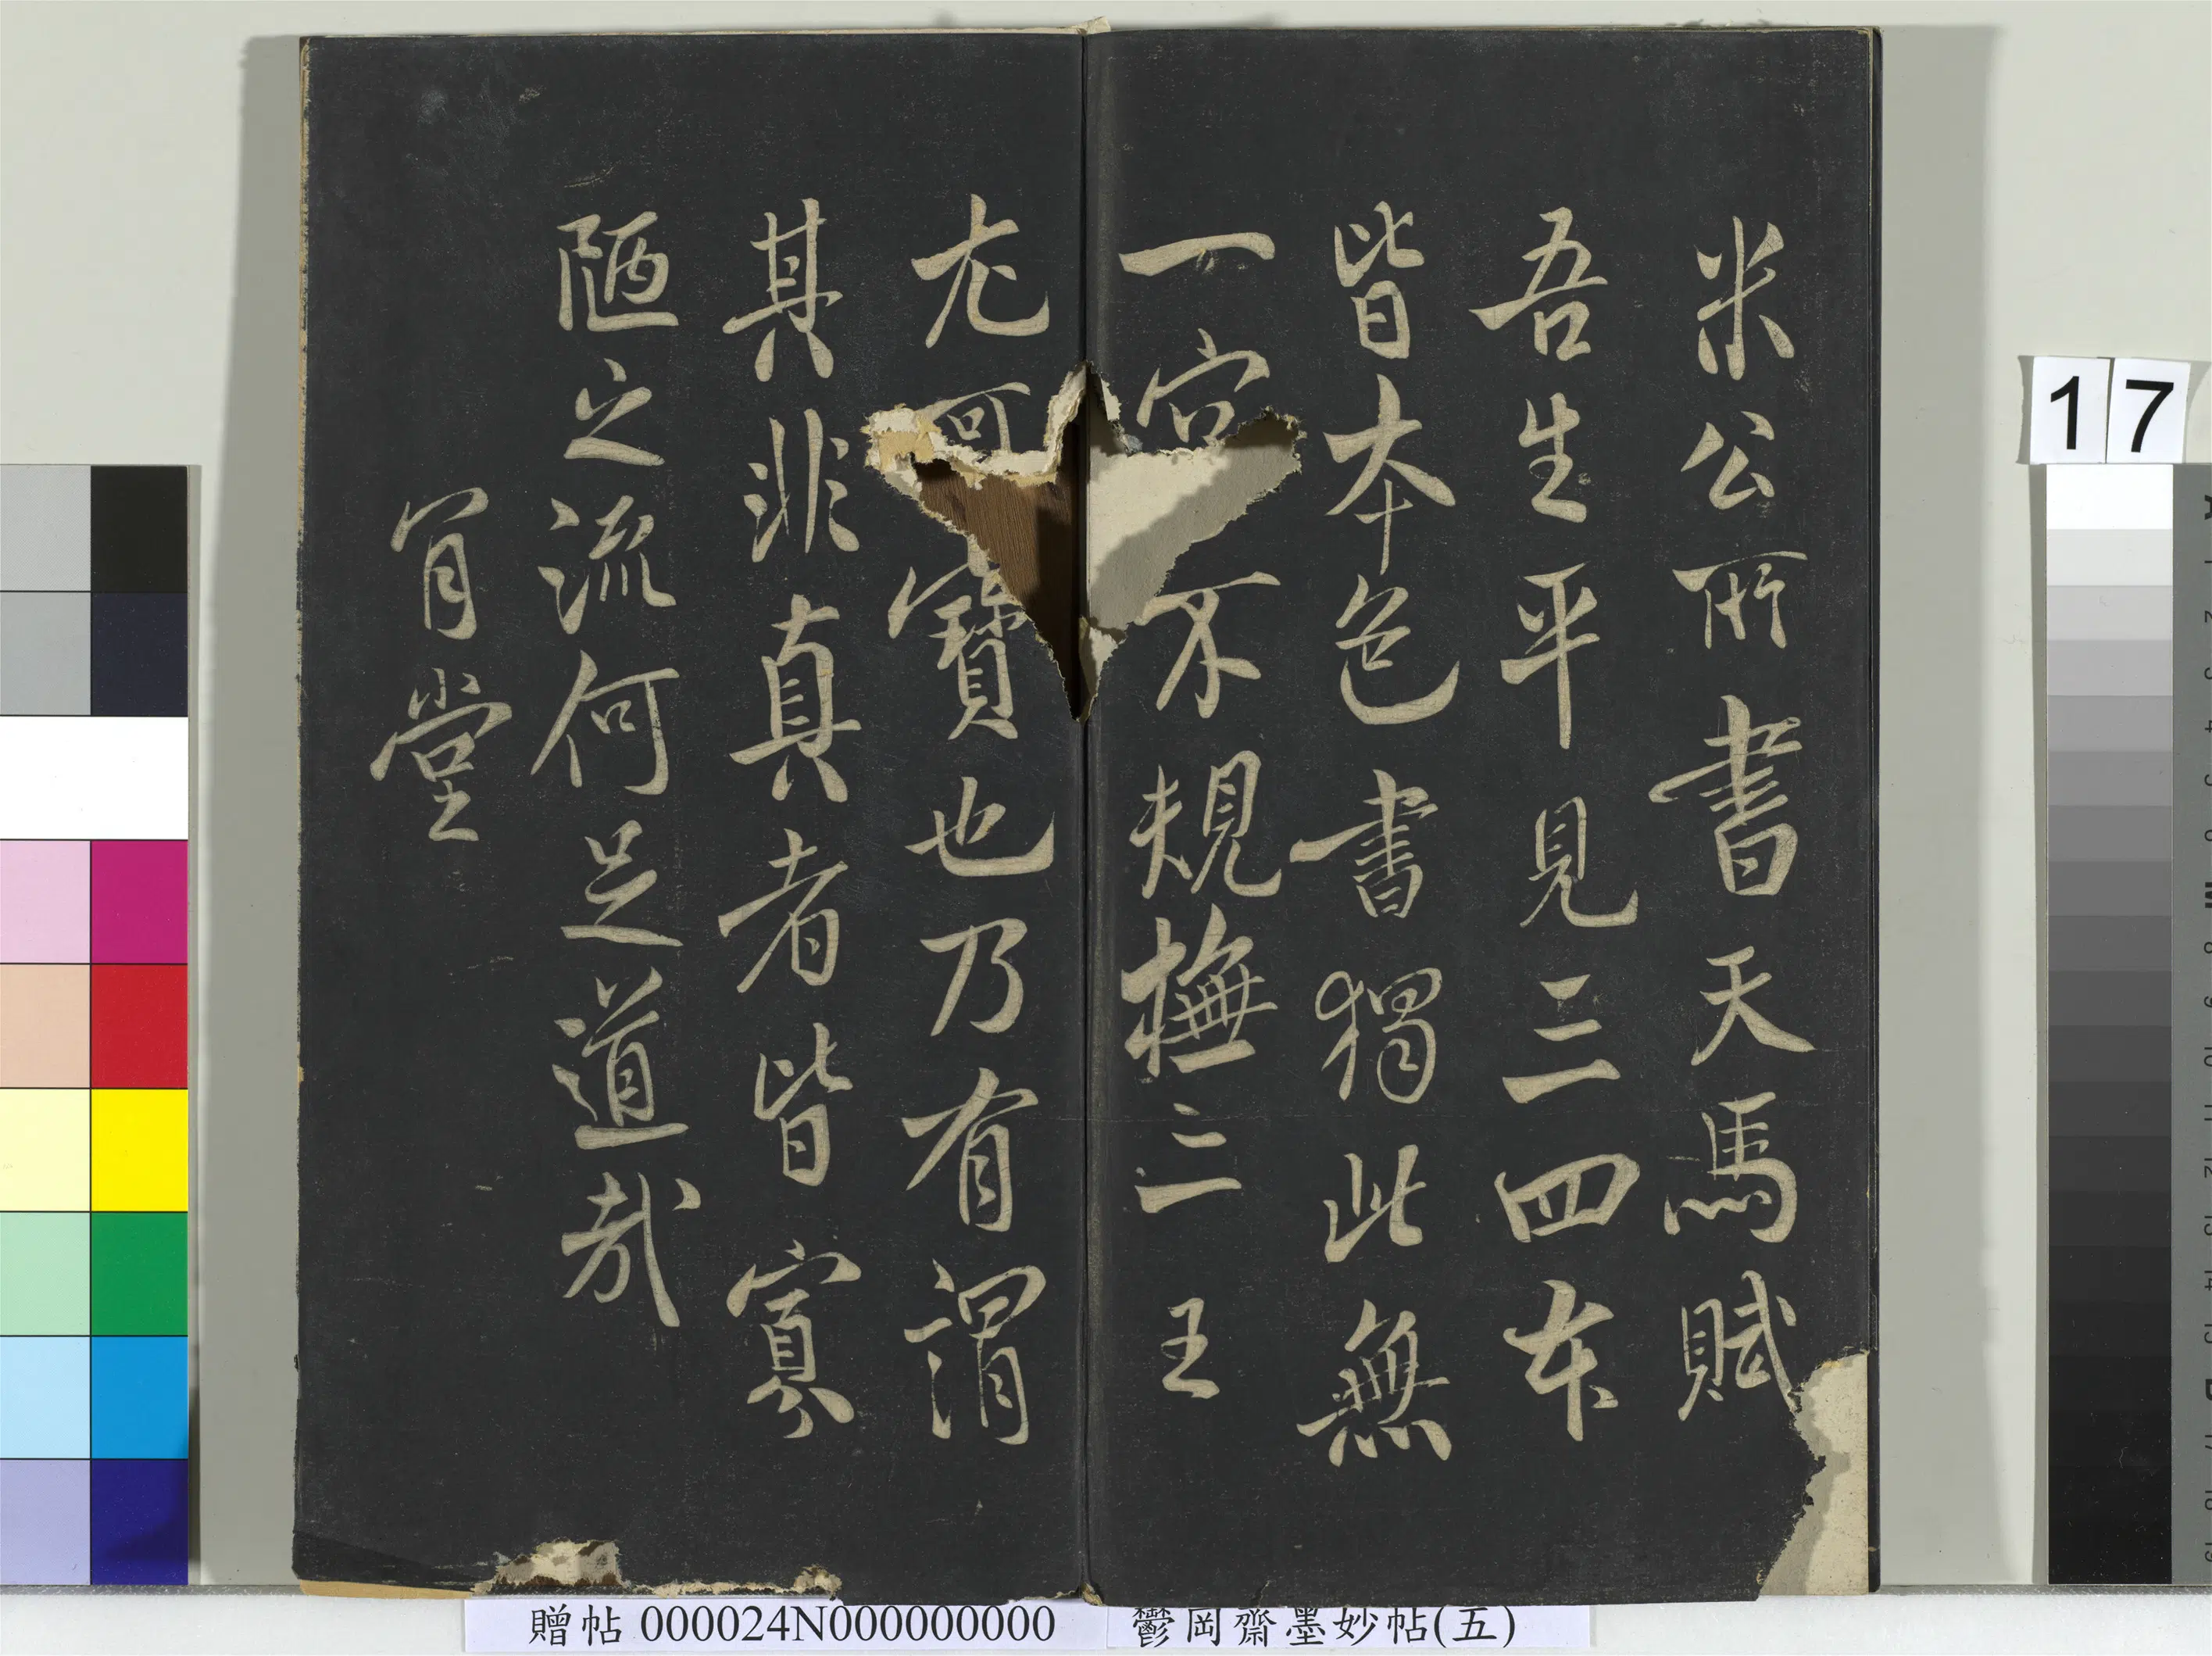 米公所書天馬賦
吾生平見三四本
皆本色書獨此無
一不規橅三王
尤可寶也乃有謂
其非真者皆寡
陋之流何足道哉
肎堂
17
贈帖 000024N000000000 鬱岡齋墨妙帖(五)